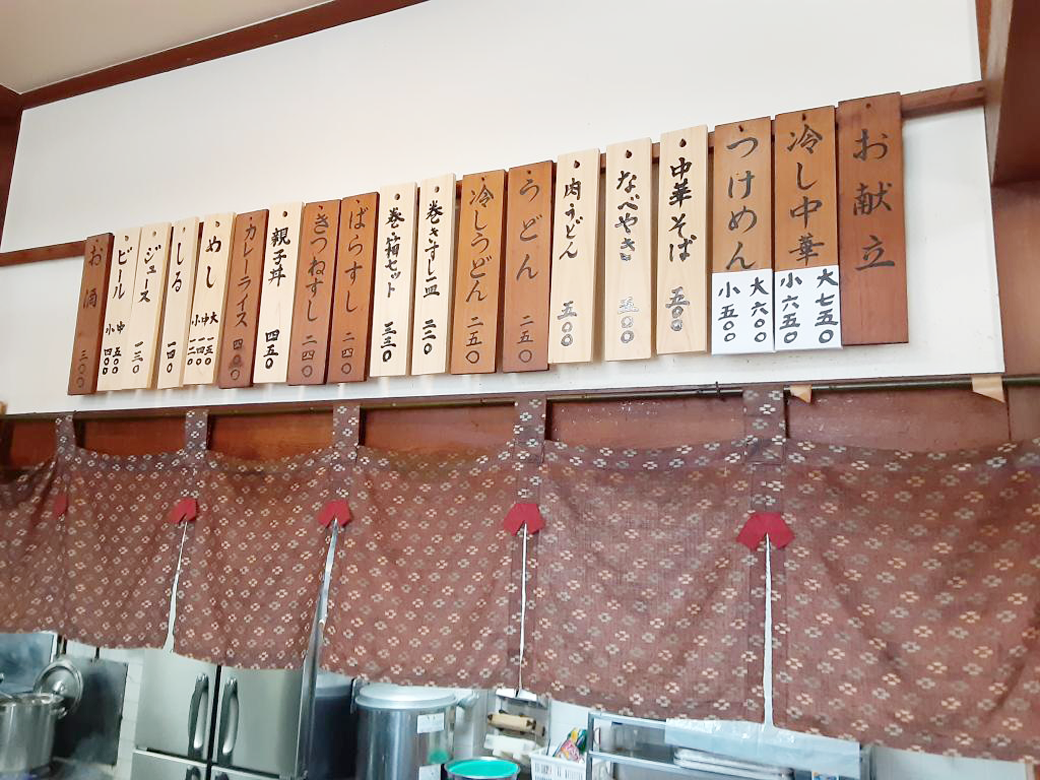 お献立
冷し中華
大七五〇
小六五〇
つけめん
大六〇〇
小五〇〇
中華そば 五〇〇
なべやき 五〇〇
肉うどん 五〇〇
うどん 二五〇
冷しうどん 二五〇
巻きすし皿 二二〇
巻・箱セット 三三〇
ばらすし 二四〇
きつねすし 二四〇
親子丼 四五〇
カレーライス 四〇〇
めし
大 一五〇
中 一四〇
小 一二〇
しる 一四〇
ジュース 一三〇
ビール
中 五〇〇
小 四〇〇
お酒 三〇〇